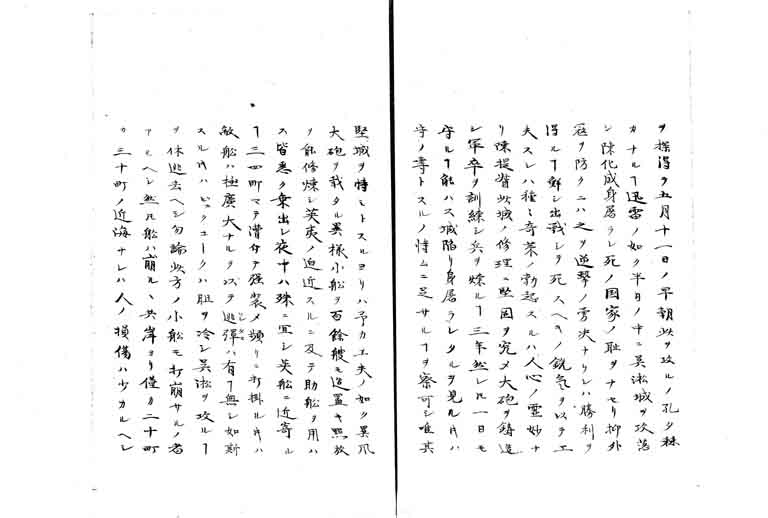 ヲ探得テ五月十一日ノ早朝此ヲ攻ルノ孔夕
カナルヿ迅雷ノ如ク半日ノ中ニ呉淞城ヲ攻落
シ陳化成身屠ラレ死ノ国家ノ耻ヲナセリ抑外
寇ヲ防クニハ之ヲ逆撃ノ雪决ナリレハ勝利ヲ
得ルヿ鮮シ出戦シテ死スヘキノ鋭氣ヲ以テ工
夫スレハ種々奇策ノ勃起スルハ人心ノ霊妙ナ
リ陳提督此城ノ修理ニ堅固ヲ究メ大砲ヲ鋳造
シ軍卒ヲ訓練シ兵ヲ煉ルヿ三年然レ𪜈一日モ
守ルヿ能ハス城陥リ身屠ラレタルヲ見ル𪜈ハ
守ノ専トスルノ恃ムニ足サルヿヲ察可シ唯其
堅城ヲ恃ミトスルヨリハ予カ工夫ノ如ク異爪
大砲ヲ載タル異様小船ヲ百餘艘モ造置キ熟放
ヲ能修煉シ英夷ノ迫近スルニ及テ助船ヲ用ハ
ス皆悉ク乗出シ夜中ハ殊ニ宜シ英船ニ近寄ル
ヿ三四町マテ漕付テ强裝メ頻リニ打掛ル𪜈ハ
敵船ハ極廣大ナルヲ以テ逃彈ハ有ヿ無シ如斯
スル𪜈ハビッユークハ胆ヲ冷シ呉淞ヲ攻ルヿ
ヲ休逃去ヘシ勿論此方ノ小船モ打崩サルノ者
アルヘシ然𪜈船ハ崩ルヽ共岸ヨリ僅カ二十町
カ三十町ノ近海ナレハ人ノ損傷ハ少カルヘシ